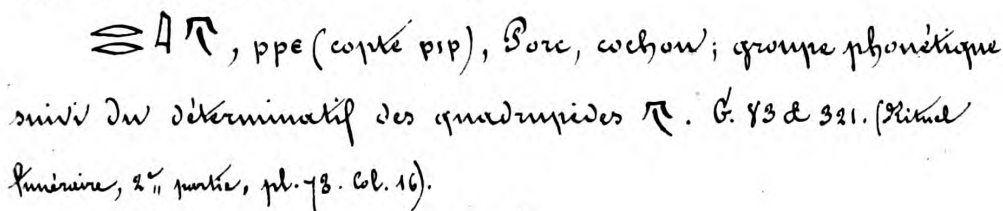 𓂋𓂋𓇋𓄛, ppe (copte pıp), Porc, cochon; groupe phonétique
suivi du déterminatif des quadrupèdes 𓄛. G. 83 & 321. (Rituel
funéraire, 2e partie, pl. 73. Col. 16).